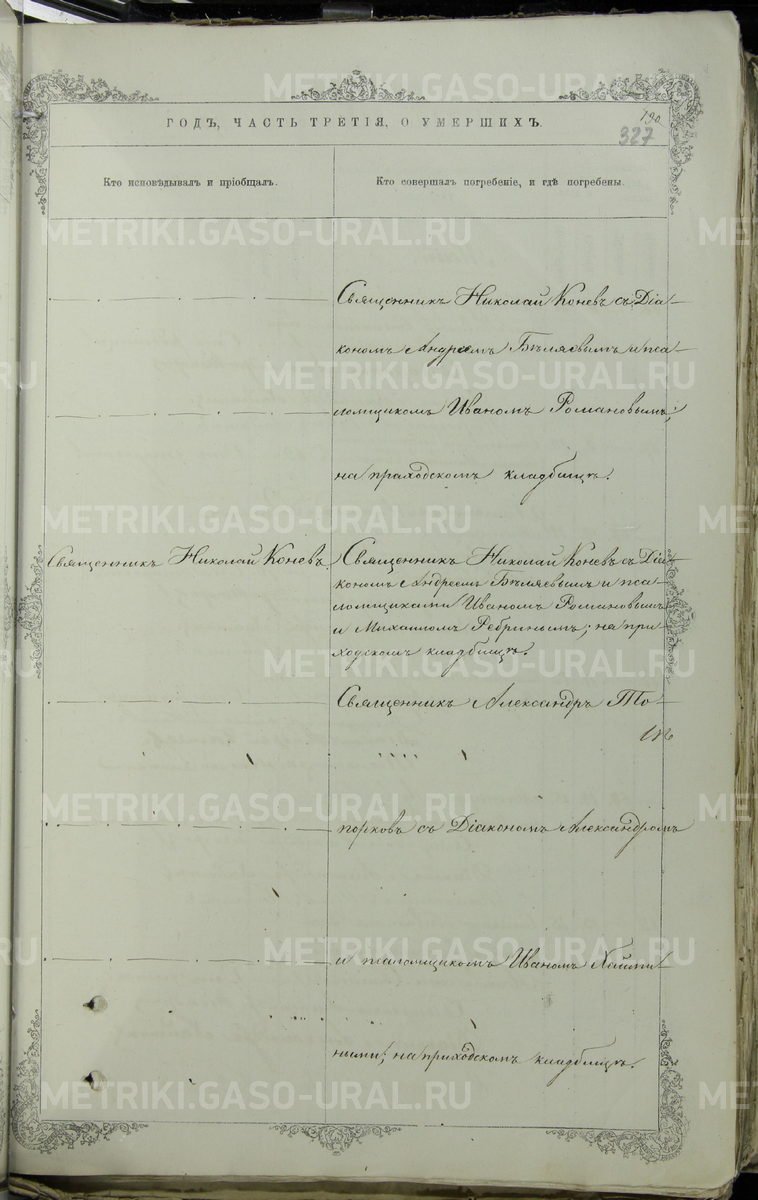 METRIKI.GASO-URAL.RU
ГОДЪ, ЧАСТЬ ТРЕТІЯ, О УМЕРШИХЪ.
190
327
Кто исповѣдывалъ и пріобщалъ.
Кто совершалъ погребеніе, и гдѣ погребены.
Священникъ Николай Коневъ съ Діа-
кономъ Андреемъ Бѣляевымъ и пса-
ломщикомъ Иваномъ Романовымъ;
на приходскомъ кладбищѣ.
Священникъ Николай Коневъ.
Священникъ Николай Коневъ съ Діа-
кономъ Андреемъ Бѣляевымъ и пса-
ломщиками Иваномъ Романовымъ
и Михаиломъ Ребринымъ; на при-
ходскомъ кладбищѣ.
Священникъ Александръ То-
порковъ съ Діакономъ Александромъ
и псаломщикомъ Иваномъ
ными; на приходскомъ кладбищѣ.